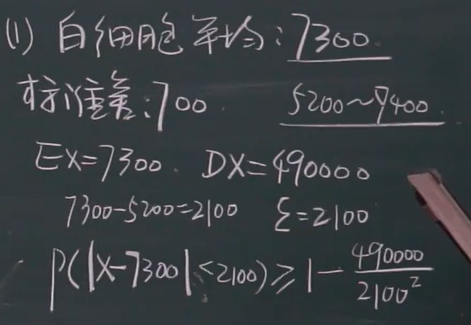 (1) 白细胞平均:7300
标准差:700 5200~9400
EX=7300. DX=490000
7300-5200=2100 ε=2100
P(|X-7300|<2100)≥1-490000/2100²